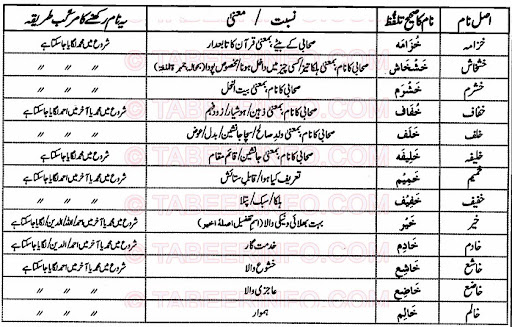 اصل نام | نام کا صحیح تلفظ | نسبت / معنی | یہ نام رکھنے کا مرکب طریقہ
خزامہ | خُزَامَہ | صحابی کے بیٹے، بمعنی قرآن کا تابعدار | شروع میں محمد لگایا جاسکتا ہے
خشخاش | خَشْخَاش | صحابی کا نام بمعنی ہلکا تیز/کسی چیز میں داخل ہونا/مخصوص پودا | شروع میں محمد یا آخر میں احمد لگایا جاسکتا ہے
خشرم | خَشْرَم | صحابی کا نام بمعنی بیت النحل | 〃 〃 〃
خفاف | خُفَاف | صحابی کا نام، بمعنی ذہین/ہوشیار/زود فہم | شروع میں محمد یا آخر میں احمد لگایا جاسکتا ہے
خلف | خَلَف | صحابی کا نام، بمعنی ولدِ صالح/سچا جانشین/بدل/عوض | 〃 〃 〃
خلیفہ | خَلِیفَہ | صحابی کا نام، بمعنی جانشین/قائم مقام | شروع میں محمد یا آخر میں احمد لگایا جاسکتا ہے
خمیم | خَمِیْم | تعریف کیا ہوا/قابلِ ستائش | 〃 〃 〃
خفیف | خَفِیْف | ہلکا/سبک/پتلا | 〃 〃 〃
خیر | خَیْر | بہت بھلائی ونیکی والا (اسمِ تفضیل اصلہٗ اخیر) | شروع میں محمد یا آخر میں احمد/اللہ/الدین/لگایا جاسکتا ہے
خادم | خَادِم | خدمت گار | شروع میں محمد یا آخر میں احمد/الدین/لگایا جاسکتا ہے
خاشع | خَاشِع | خشوع والا | شروع میں محمد یا آخر میں احمد لگایا جاسکتا ہے
خاضع | خَاضِع | عاجزی والا | 〃 〃 〃
خالم | خَالِم | ہموار | 〃 〃 〃
© TABEERINFO.COM